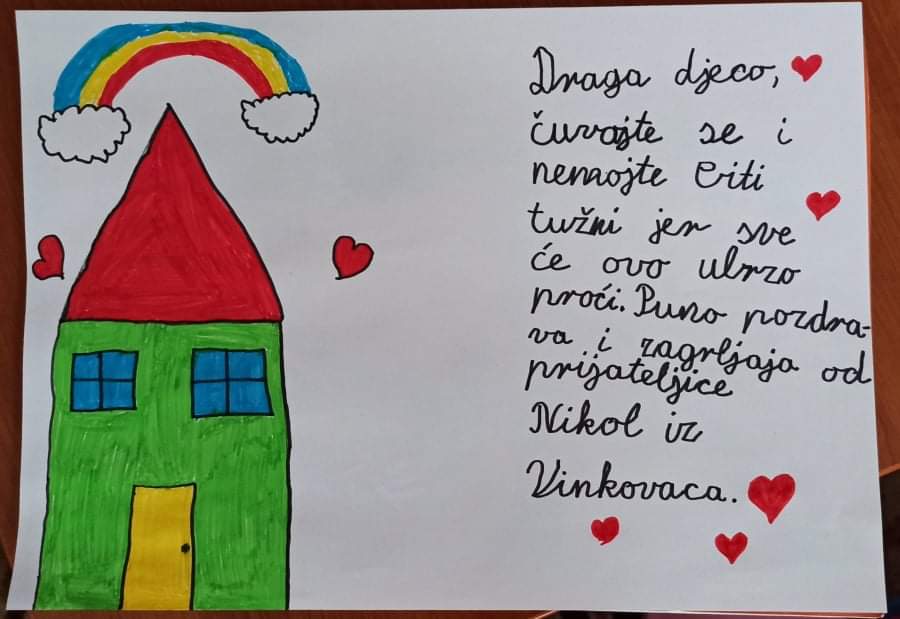 Draga djeco,
čuvajte se i
nemojte biti
tužni jer sve
će ovo ubrzo
proći. Puno pozdra-
va i zagrljaja od
prijateljice
Nikol iz
Vinkovaca.